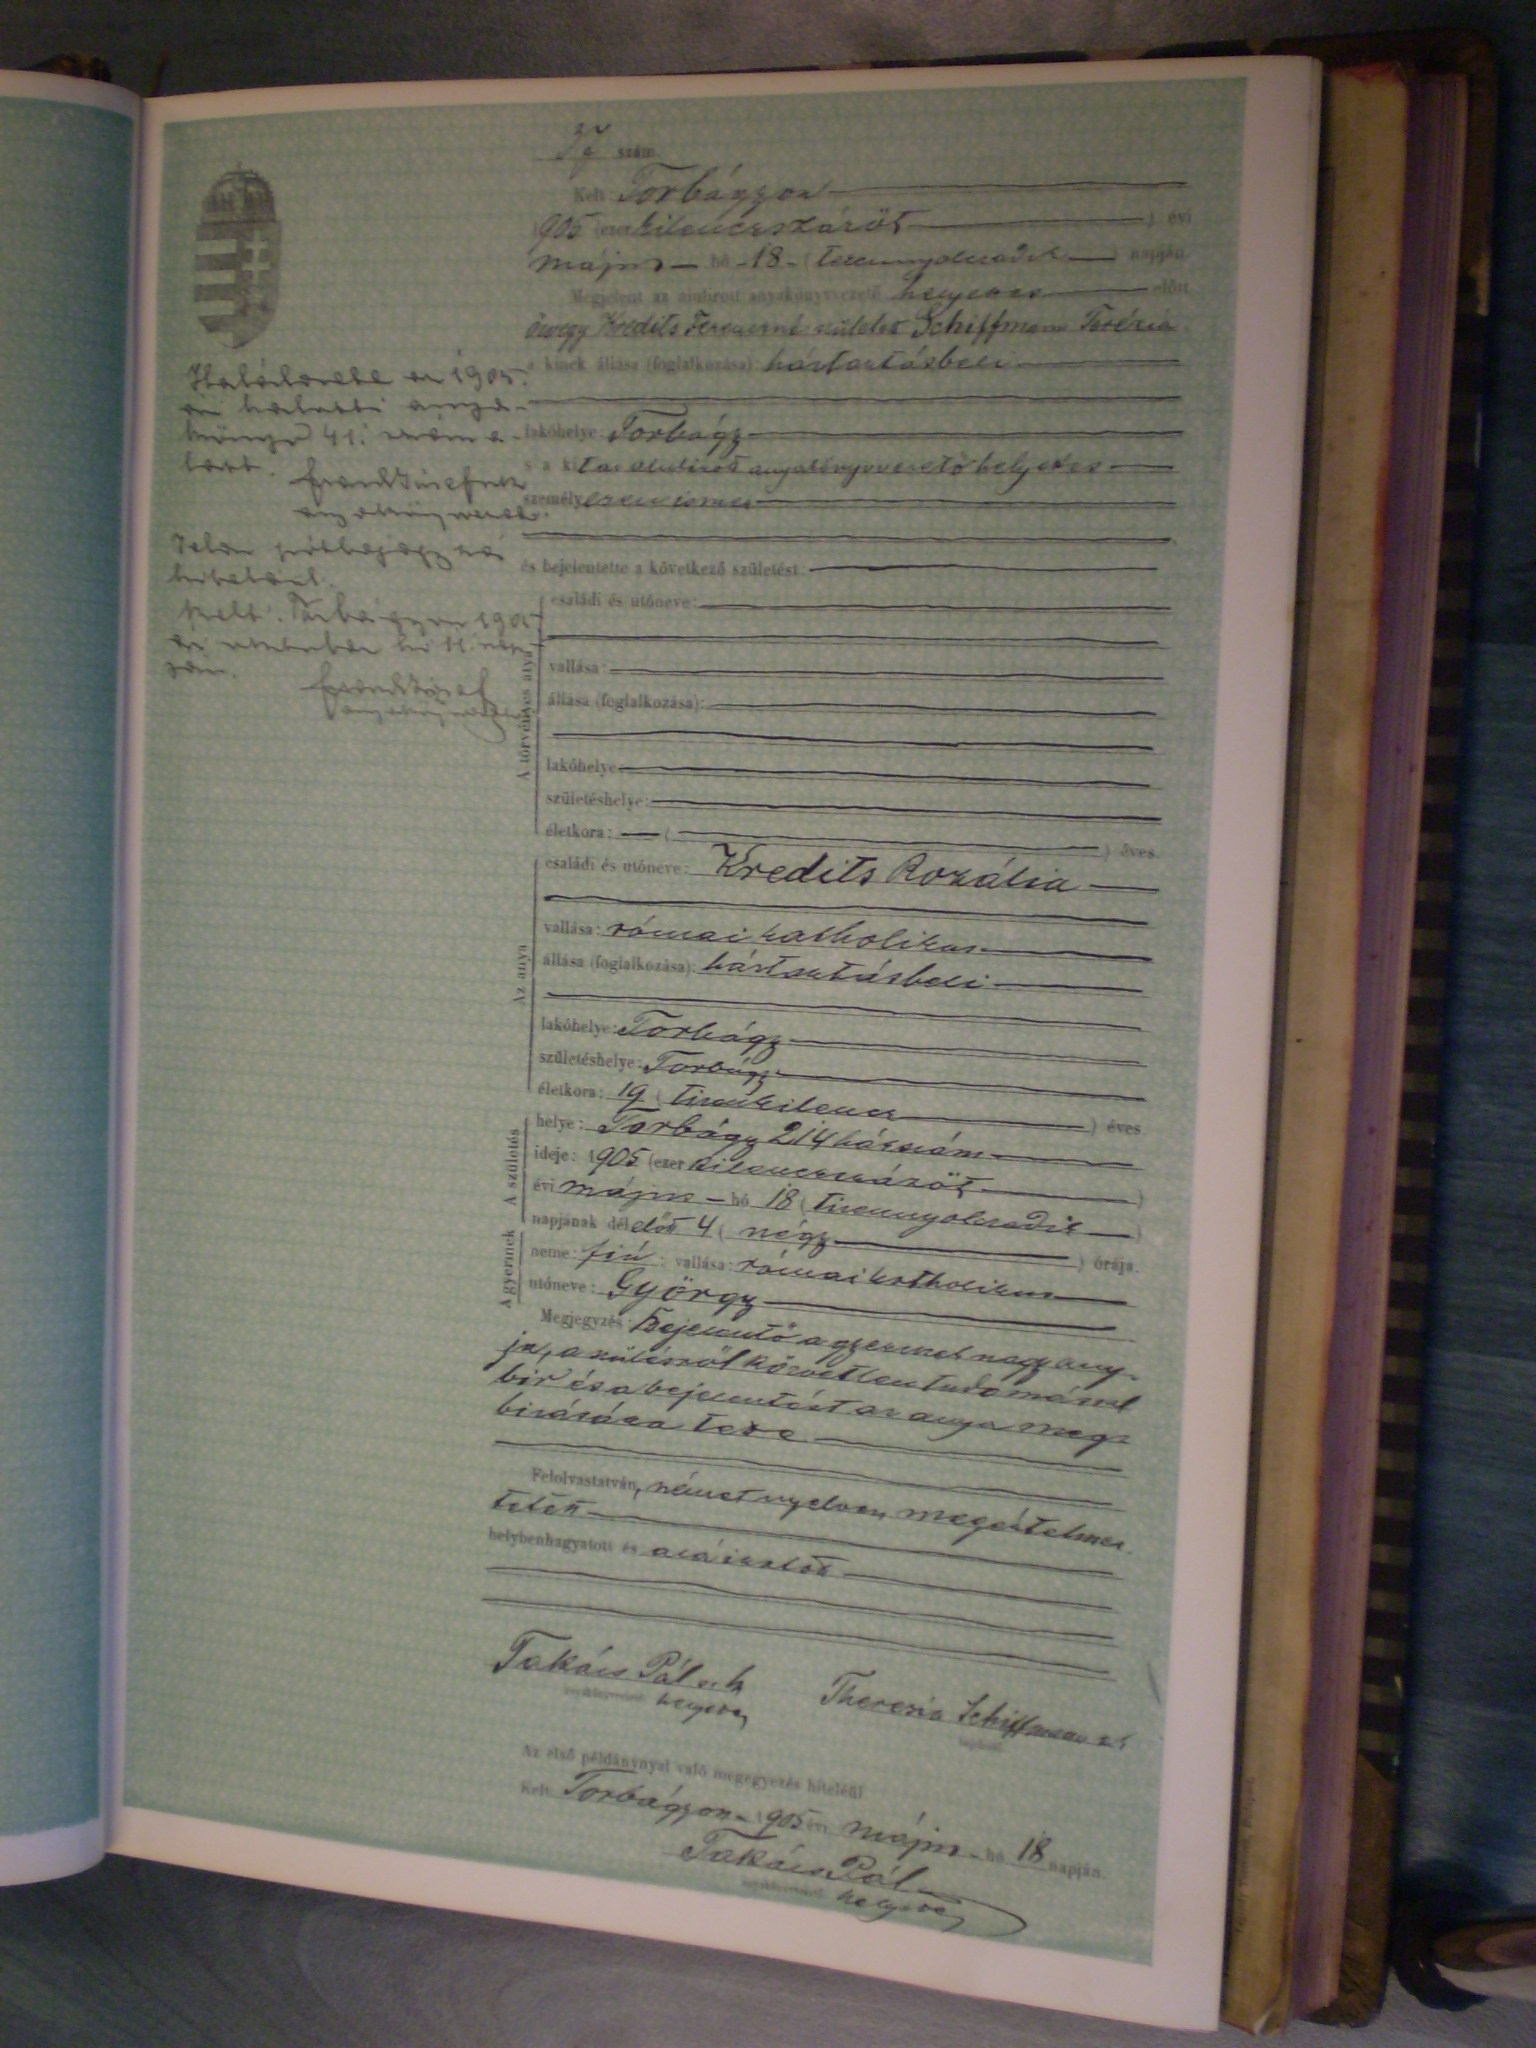 szám
Kelt Torbágyon
1905 (ezer kilenczszázöt) évi
május hó 18 (tizennyolczadik) napján.
Megjelent az alulirott anyakönyvvezető helyettes előtt
özvegy Kredits Ferenczné született Schiffmann Terézia
a kinek állása (foglalkozása): háztartásbeli
lakóhelye Torbágy
s a kit az alulirott anyakönyvvezető helyettes
személyesen ismer
és bejelentette a következő születést:
A törvényes atya
családi és utóneve:
vallása:
állása (foglalkozása):
lakóhelye
születéshelye:
életkora: ( ) éves.
Az anya
családi és utóneve: Kredits Rozália
vallása: római katholikus
állása (foglalkozása): háztartásbeli
lakóhelye: Torbágy
születéshelye: Torbágy
életkora: 19 (tizenkilencz) éves
A születés
helye: Torbágy 214 házszám
ideje: 1905 (ezer kilenczszázöt)
évi május hó 18 (tizennyolczadik)
napjának délelőtt 4 (négy) órája.
A gyermek
neme: fiú; vallása: római katholikus
utóneve: György
Megjegyzés: Bejelentő a gyermek nagyany-
ja, a szülésről közvetlen tudomással
bir és a bejelentést az anya meg-
bizására teszi
Felolvastatván, német nyelven megértelmez-
tetett
helybenhagyatott és aláiratott
Takács Pál s. k.
helyettes
Therezia Schiffmann s. k.
Az első példánynyal való megegyezés hiteléül
Kelt Torbágyon 1905 évi május hó 18 napján.
Takács Pál
helyettes
anyakönyvvezető
Kelt. Torbágyon 1905